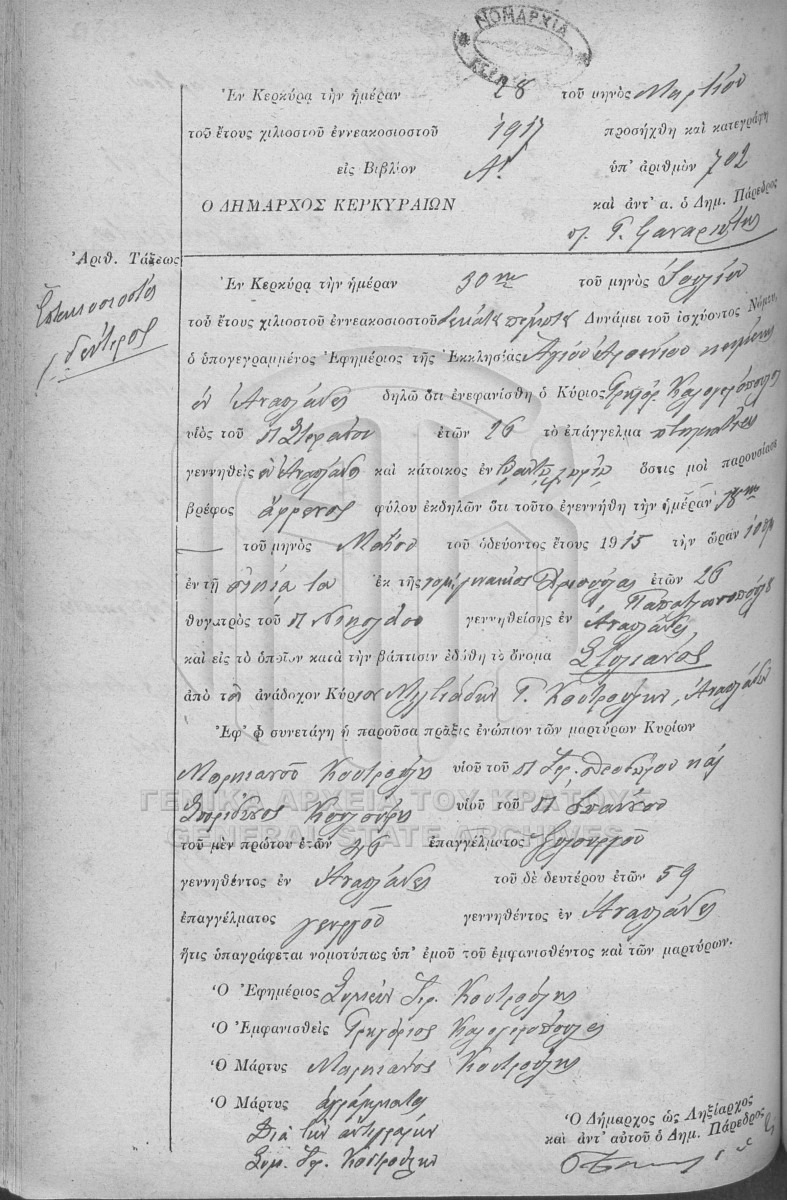 ΝΟΜΑΡΧΙΑ
Ἐν Κερκύρᾳ τὴν ἡμέραν 28 τοῦ μηνὸς Μαρτίου
τοῦ ἔτους χιλιοστοῦ ἐννεακοσιοστοῦ 1917 προσήχθη καὶ κατεγράφη
εἰς Βιβλίον Α! ὑπ' ἀριθμὸν 702
Ο ΔΗΜΑΡΧΟΣ ΚΕΡΚΥΡΑΙΩΝ καὶ ἀντ' α. ὁ Δημ. Πάρεδρος
Ἀριθ. Τάξεως
Ἑπτακοσιοστὸς
δεύτερος
Ἐν Κερκύρᾳ τὴν ἡμέραν 30ην τοῦ μηνὸς Ἰουλίου
τοῦ ἔτους χιλιοστοῦ ἐννεακοσιοστοῦ δεκάτου πέμπτου Δυνάμει τοῦ ἰσχύοντος Νόμου,
ὁ ὑπογεγραμμένος Ἐφημέριος τῆς Ἐκκλησίας Ἁγίου Ἀρσενίου κειμένης
ἐν Ἀναπλάδες δηλῶ ὅτι ἐνεφανίσθη ὁ Κύριος Γρηγόρ. Καλογερόπουλος
υἱὸς τοῦ π Στεφάνου ἐτῶν 26 τὸ ἐπάγγελμα κτηματίας
γεννηθεὶς ἐν Ἀναπλάδες καὶ κάτοικος ἐν ὅστις μοὶ παρουσίασε
βρέφος ἄρρενος φύλου ἐκδηλῶν ὅτι τοῦτο ἐγεννήθη τὴν ἡμέραν 18ην
τοῦ μηνὸς Μαΐου τοῦ ὁδεύοντος ἔτους 1915 τὴν ὥραν
ἐν τῇ οἰκίᾳ του ἐκ τῆς νομίμ γυναικός Χρυσούλας ἐτῶν 26
Παπαδοπούλου
θυγατρὸς τοῦ π Νικολάου γεννηθείσης ἐν Ἀναπλάδες
καὶ εἰς τὸ ὁποῖον κατὰ τὴν βάπτισιν ἐδόθη τὸ ὄνομα Στυλιανός
ἀπὸ τὸν ἀνάδοχον Κύριον Μιλτιάδην Γ. Κουτρούλην, Ἀναπλάδες
Ἐφ' ᾧ συνετάγη ἡ παροῦσα πρᾶξις ἐνώπιον τῶν μαρτύρων Κυρίων
Μαρκιανοῦ Κουτρούλη υἱοῦ τοῦ π Ἱερ. Θεοδώρου καὶ
Σπυρίδωνος υἱοῦ τοῦ π Ἰωάννου
ΓΕΝΙΚΑ ΑΡΧΕΙΑ ΤΟΥ ΚΡΑΤΟΥΣ
GENERAL STATE ARCHIVES
τοῦ μὲν πρώτου ἐτῶν 46 ἐπαγγέλματος ξυλουργοῦ
γεννηθέντος ἐν Ἀναπλάδες τοῦ δὲ δευτέρου ἐτῶν 59
ἐπαγγέλματος γεωργοῦ γεννηθέντος ἐν Ἀναπλάδες
ἥτις ὑπαγράφεται νομοτύπως ὑπ' ἐμοῦ τοῦ ἐμφανισθέντος καὶ τῶν μαρτύρων.
Ὁ Ἐφημέριος Συμεὼν Ἱερ. Κουτρούλης
Ὁ Ἐμφανισθεὶς Γρηγόριος Καλογερόπουλος
Ὁ Μάρτυς Μαρκιανὸς Κουτρούλης
Ὁ Μάρτυς ἀγράμματος
Διὰ τὴν ἀντιγραφήν
Συμ. Ἱερ. Κουτρούλης
Ὁ Δήμαρχος ὡς Ληξίαρχος
καὶ ἀντ' αὐτοῦ ὁ Δημ. Πάρεδρος